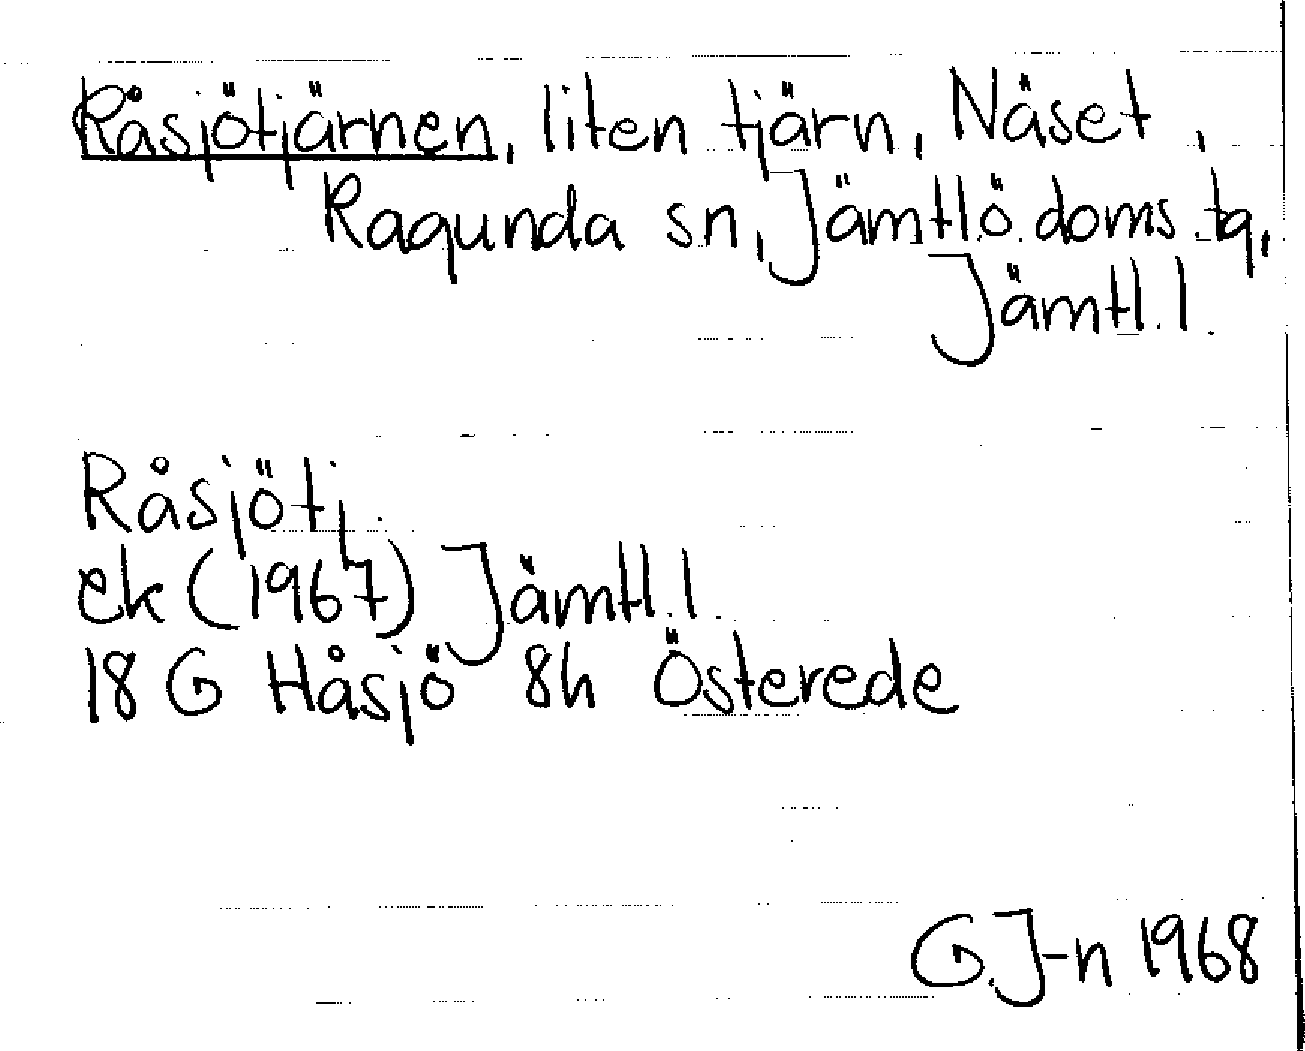 Råsjötjärnen, liten tjärn, Näset,
Ragunda sn, Jämtl.ö. doms. tg,
Jämtl. l.
Råsjötj.
ek (1967) Jämtl. l.
18 G Håsjö 8h Österede
G.J-n 1968